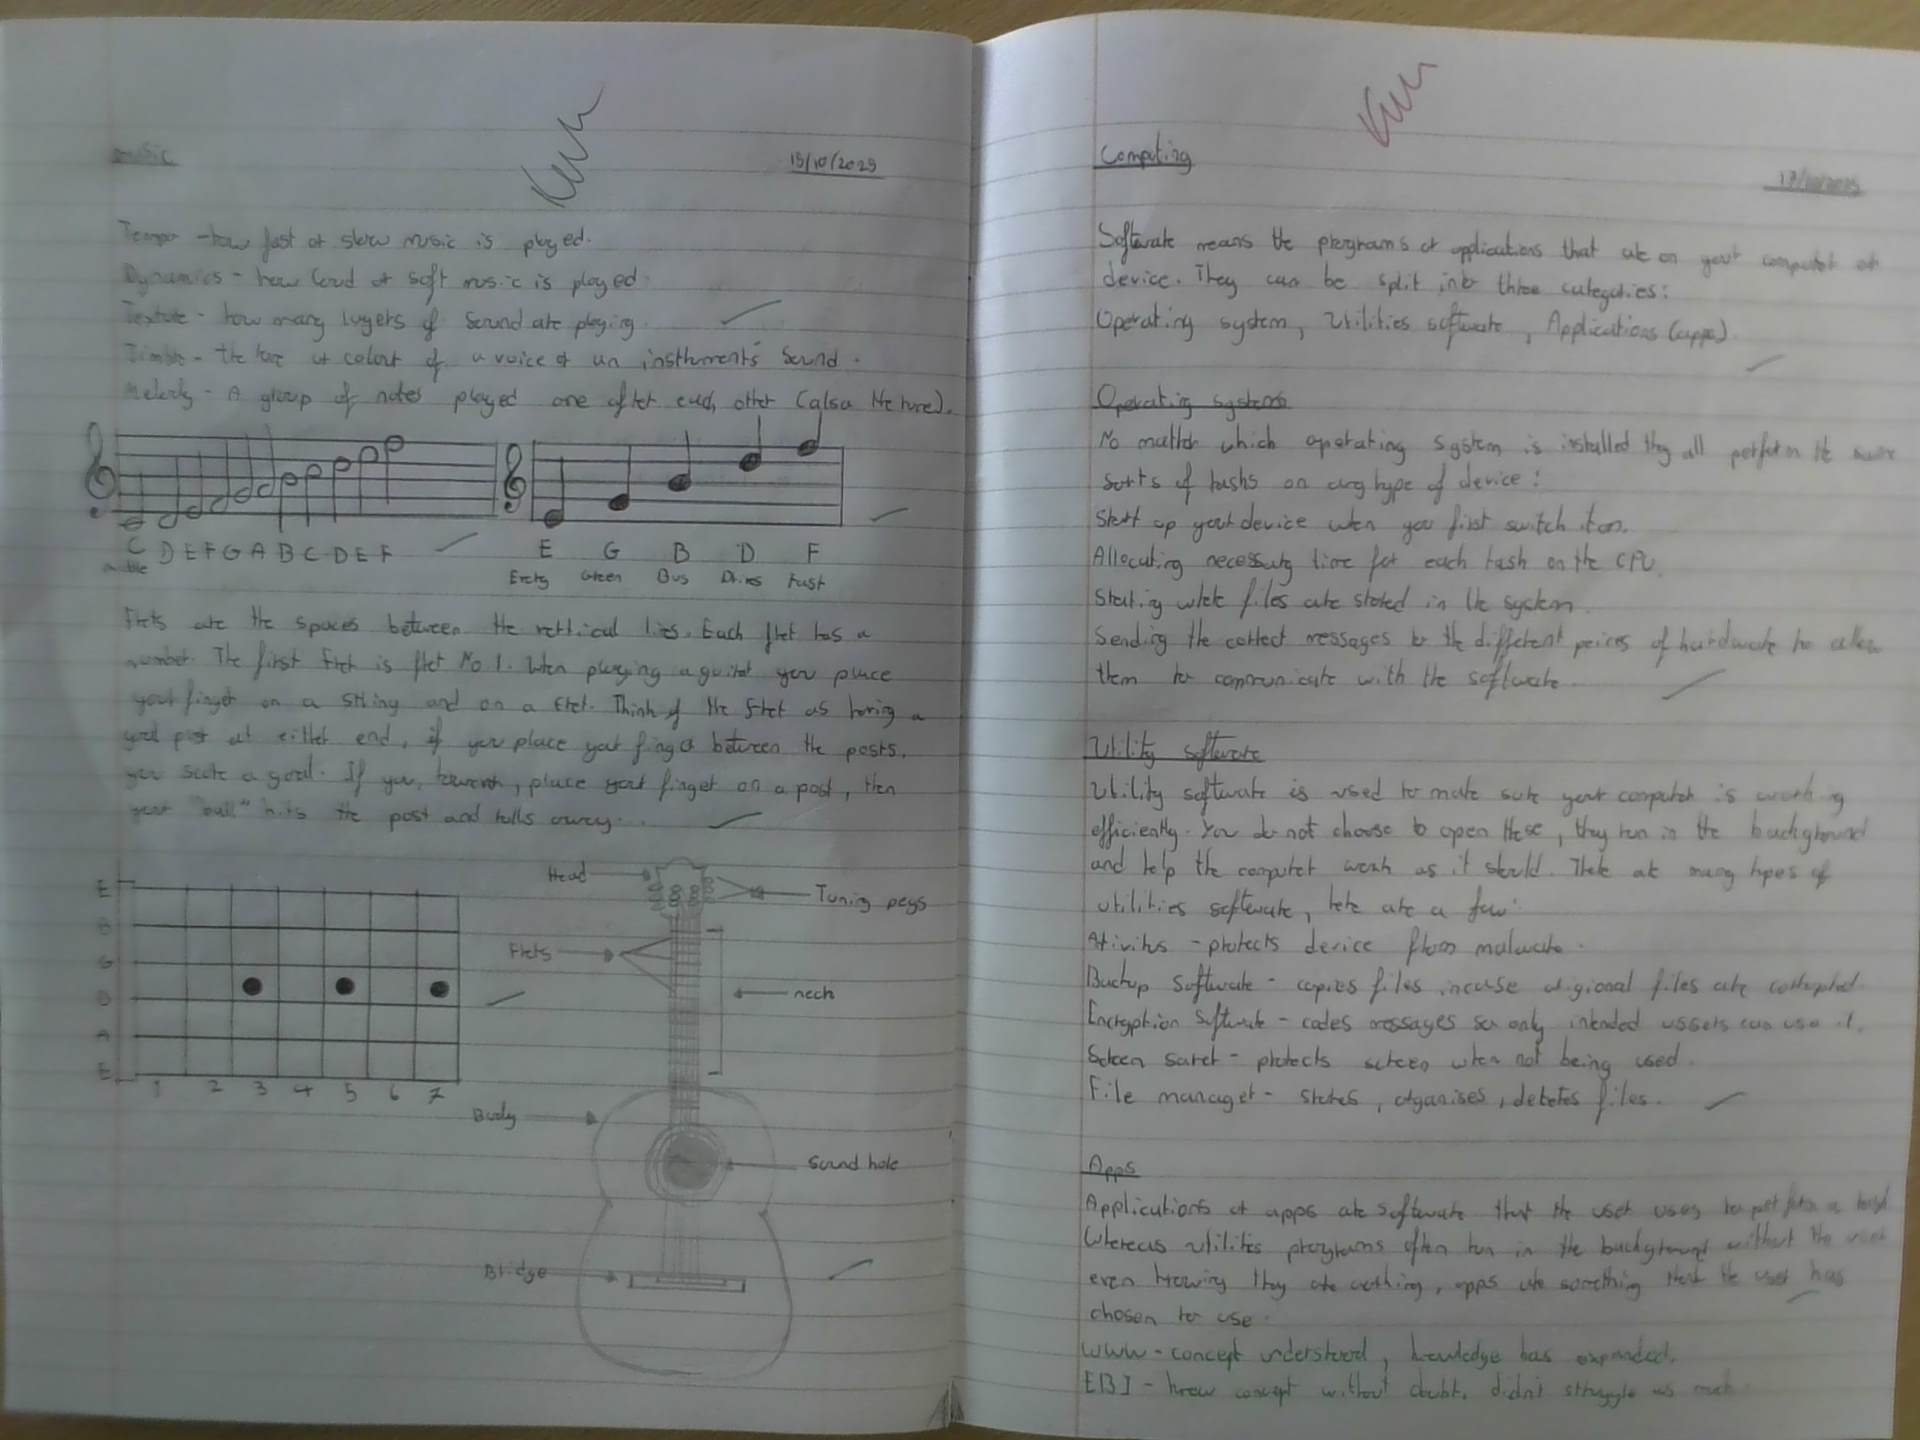 music
15/10/2025
Tempo - how fast or slow music is played.
Dynamics - how loud or soft music is played.
Texture - how many layers of sound are playing.
Timbre - the tone or colour of a voice or an instruments sound.
Melody - A group of notes played one after each other (also the tune).
C D E F G A B C D E F
middle
E G B D F
Every Green Bus Drives Fast
Frets are the spaces between the vertical lies. Each fret has a
number. The first fret is fret No 1. When playing a guitar you place
your finger on a string and on a fret. Think of the fret as having a
goal post at either end, if you place your finger between the posts.
you score a goal. If you, however, place your finger on a post, then
your "ball" hits the post and rolls away.
E
B
G
D
A
E
1 2 3 4 5 6 7
Head
Tuning pegs
Frets
neck
Body
Sound hole
Bridge
Computing
Software means the programs or applications that are on your computer or
device. They can be split into three categories:
Operating system, Utilities software, Applications (apps).
Operating systems
No matter which operating system is installed they all perform the same
sorts of tasks on any type of device:
Start up your device when you first switch it on.
Allocating necessary time for each task on the CPU.
Storing where files are stored in the system.
Sending the correct messages to the different peices of hardware to allow
them to communicate with the software.
Utility software
Utility software is used to make sure your computer is working
efficiently. You do not choose to open these, they run in the background
and help the computer work as it should. There are many types of
utilities software, here are a few:
Ativirus - protects device from malware.
Backup Software - copies files incase origional files are corrupted.
Encryption Software - codes messages so only intended ussers can use it.
Screen saver - protects screen when not being used.
File manager - stores, organises, deletes files.
Apps
Applications or apps are software that the user uses to perform a task
Whereas utilities programs often run in the background without the user
even knowing they are working, apps are something that the user has
chosen to use.
WWW - concept understood, knowledge has expanded.
EBI - knew concept without doubt, didn't struggle as much.